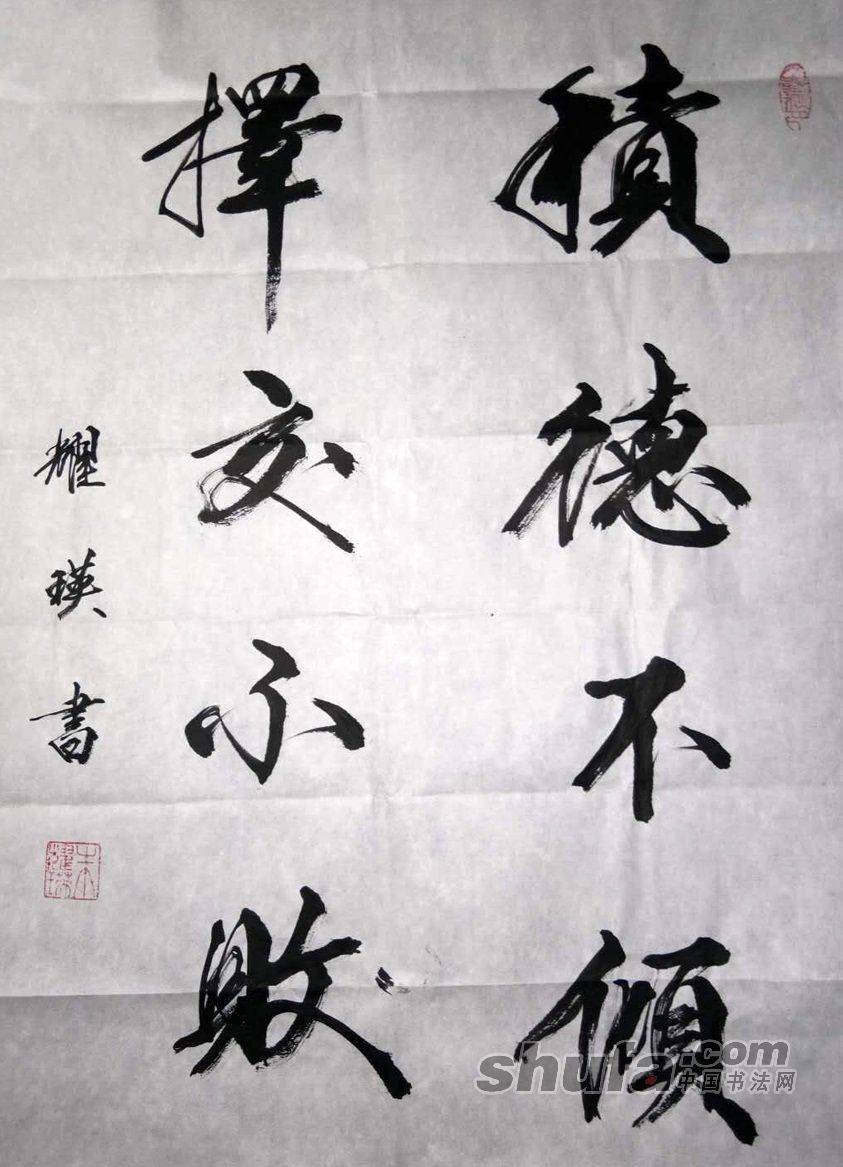 積德不傾
擇交不敗
耀瑛書
shufa.com
中国书法网